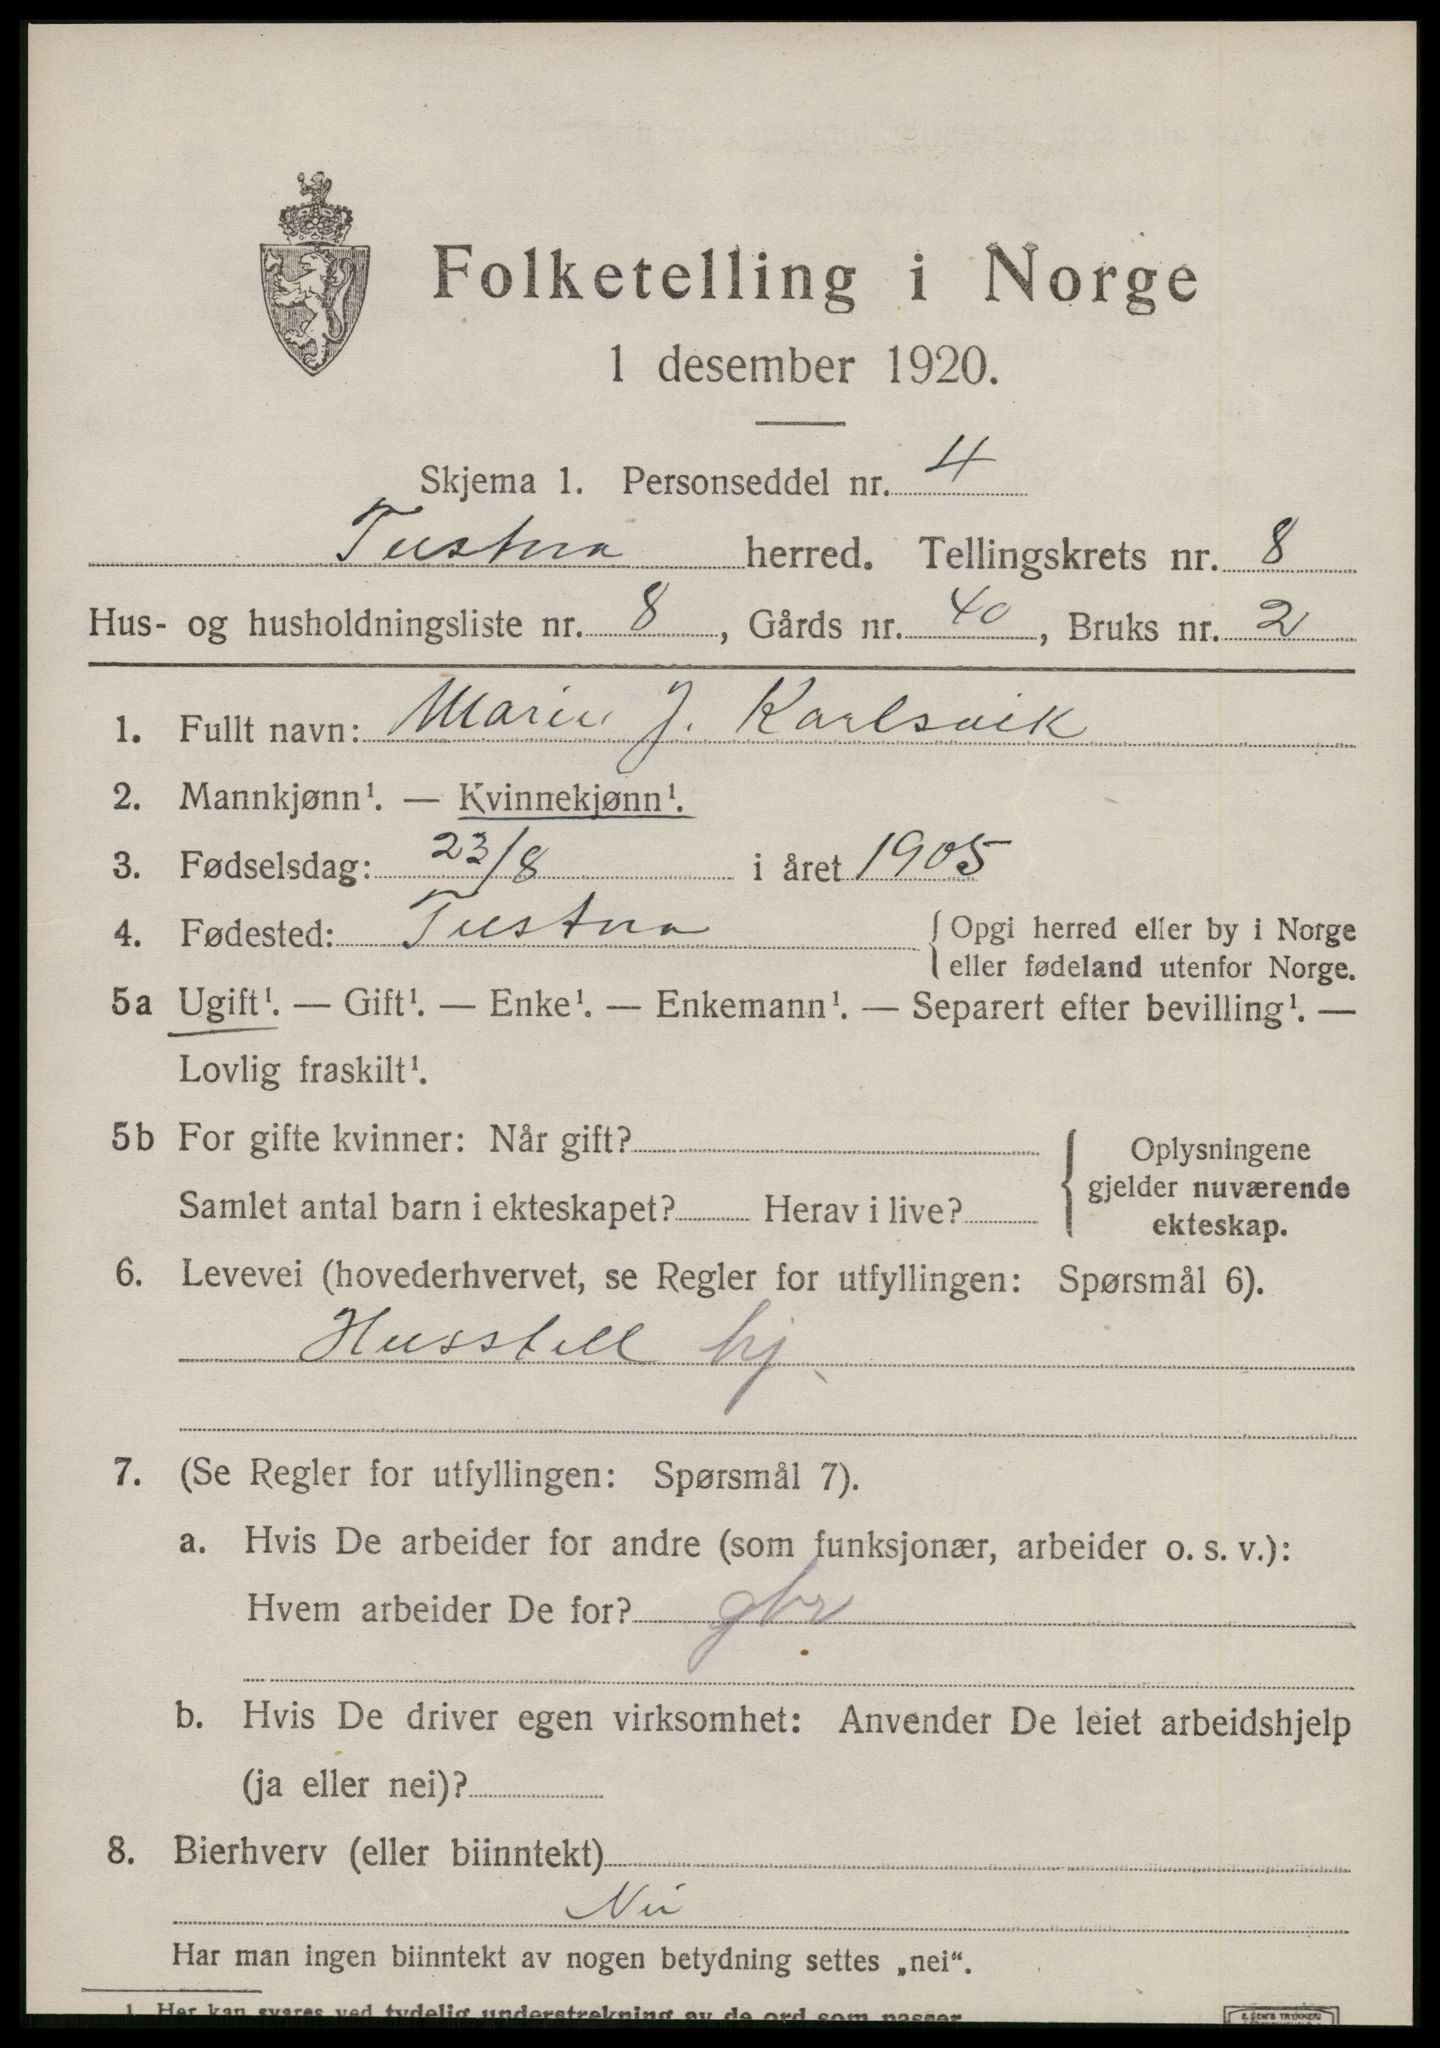 Folketelling i Norge
1 desember 1920.
Skjema 1. Personseddel nr. 4
Tustna herred. Tellingskrets nr. 8
Hus- og husholdningsliste nr. 8, Gårds nr. 40, Bruks nr. 2
1. Fullt navn: Marie J. Karlsvik
2. Mannkjønn¹. — Kvinnekjønn¹.
3. Fødselsdag: 23/8 i året 1905
4. Fødested: Tustna { Opgi herred eller by i Norge
eller fødeland utenfor Norge.
5a Ugift¹. — Gift¹. — Enke¹. — Enkemann¹. — Separert efter bevilling¹. —
Lovlig fraskilt¹.
5b For gifte kvinner: Når gift?
Samlet antal barn i ekteskapet? Herav i live?
{ Oplysningene
gjelder nuværende
ekteskap.
6. Levevei (hovederhvervet, se Regler for utfyllingen: Spørsmål 6).
Husstell hj
7. (Se Regler for utfyllingen: Spørsmål 7).
a. Hvis De arbeider for andre (som funksjonær, arbeider o. s. v.):
Hvem arbeider De for? gbr
b. Hvis De driver egen virksomhet: Anvender De leiet arbeidshjelp
(ja eller nei)?
8. Bierhverv (eller biinntekt)
Nei
Har man ingen biinntekt av nogen betydning settes „nei“.
1 Her kan svares ved tydelig understrekning av de ord som passer